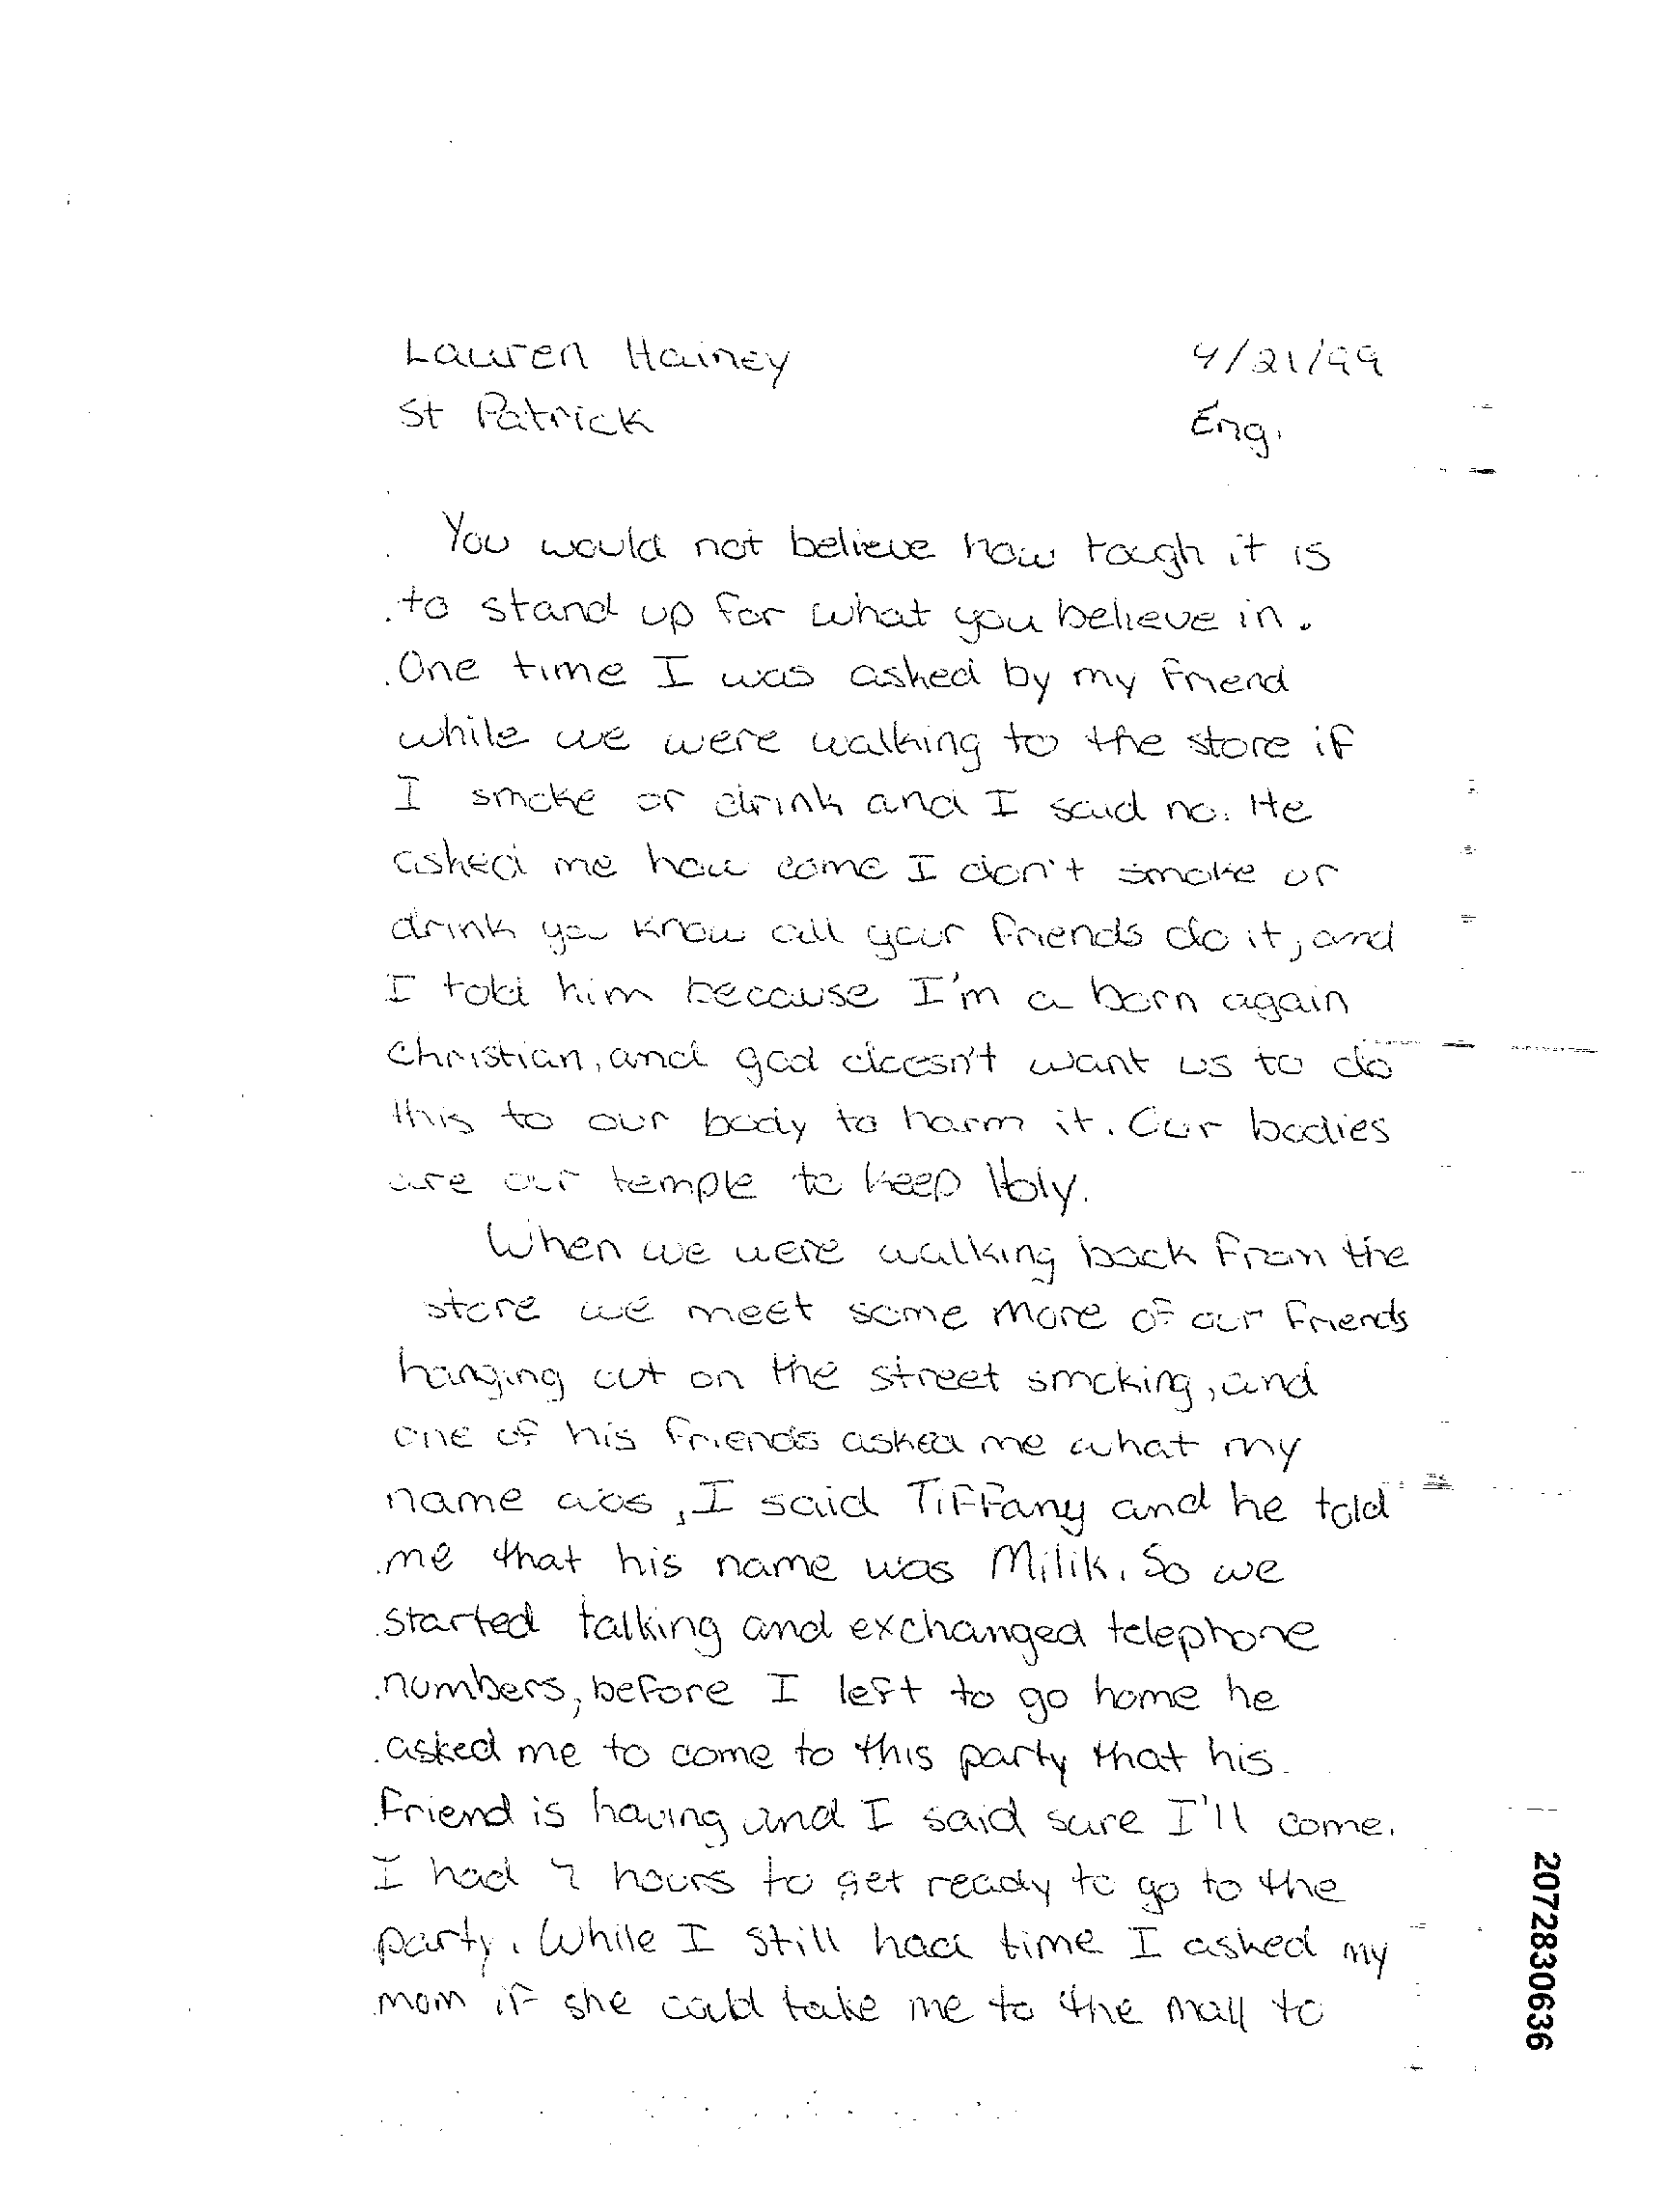 Lauren Hainey 4/21/99
St Patrick Eng.
You would not believe how tough it is
to stand up for what you believe in.
One time I was asked by my friend
while we were walking to the store if
I smoke or drink and I said no. He
asked me how come I don't smoke or
drink you know all your friends do it, and
I told him because I'm a born again
Christian, and god doesn't want us to do
this to our body to harm it. Our bodies
are our temple to keep Holy.
When we were walking back from the
store we meet some more of our friends
hanging out on the street smoking, and
one of his friends asked me what my
name was, I said Tiffany and he told
me that his name was Milik. So we
started talking and exchanged telephone
numbers, before I left to go home he
asked me to come to this party that his
friend is having and I said sure I'll come.
I had 7 hours to get ready to go to the
party. While I still had time I asked my
mom if she could take me to the mall to
2072830636